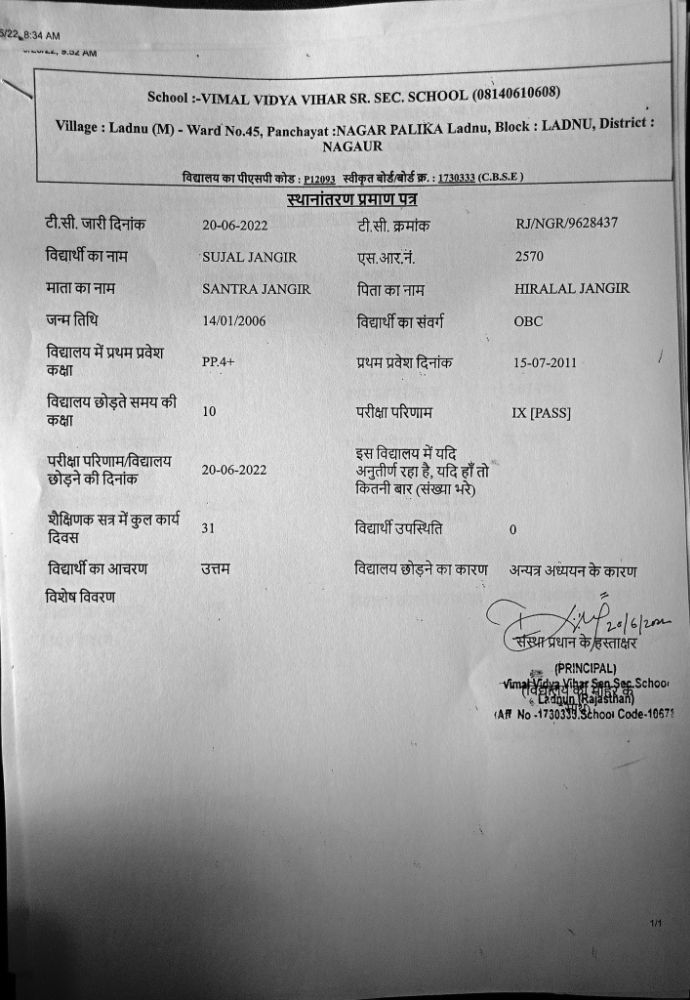 5/22, 8:34 AM
School :-VIMAL VIDYA VIHAR SR. SEC. SCHOOL (08140610608)
Village : Ladnu (M) - Ward No.45, Panchayat :NAGAR PALIKA Ladnu, Block : LADNU, District :
NAGAUR
विद्यालय का पीएसपी कोड : P12093 स्वीकृत बोर्ड/बोर्ड क्र. : 1730333 (C.B.S.E )
स्थानांतरण प्रमाण पत्र
टी.सी. जारी दिनांक 20-06-2022 टी.सी. क्रमांक RJ/NGR/9628437
विद्यार्थी का नाम SUJAL JANGIR एस.आर.नं. 2570
माता का नाम SANTRA JANGIR पिता का नाम HIRALAL JANGIR
जन्म तिथि 14/01/2006 विद्यार्थी का संवर्ग OBC
विद्यालय में प्रथम प्रवेश
कक्षा PP.4+ प्रथम प्रवेश दिनांक 15-07-2011
विद्यालय छोड़ते समय की
कक्षा 10 परीक्षा परिणाम IX [PASS]
परीक्षा परिणाम/विद्यालय
छोड़ने की दिनांक 20-06-2022 इस विद्यालय में यदि
अनुतीर्ण रहा है, यदि हाँ तो
कितनी बार (संख्या भरे)
शैक्षिणक सत्र में कुल कार्य
दिवस 31 विद्यार्थी उपस्थिति 0
विद्यार्थी का आचरण उत्तम विद्यालय छोड़ने का कारण अन्यत्र अध्ययन के कारण
विशेष विवरण
20/6/2022
संस्था प्रधान के हस्ताक्षर
(PRINCIPAL)
Vimal Vidya Vihar Sen.Sec.School
(विद्यालय की मोहर के
Ladnun (Rajasthan)
साथ)
(Aff No -1730333.School Code-10671
1/1